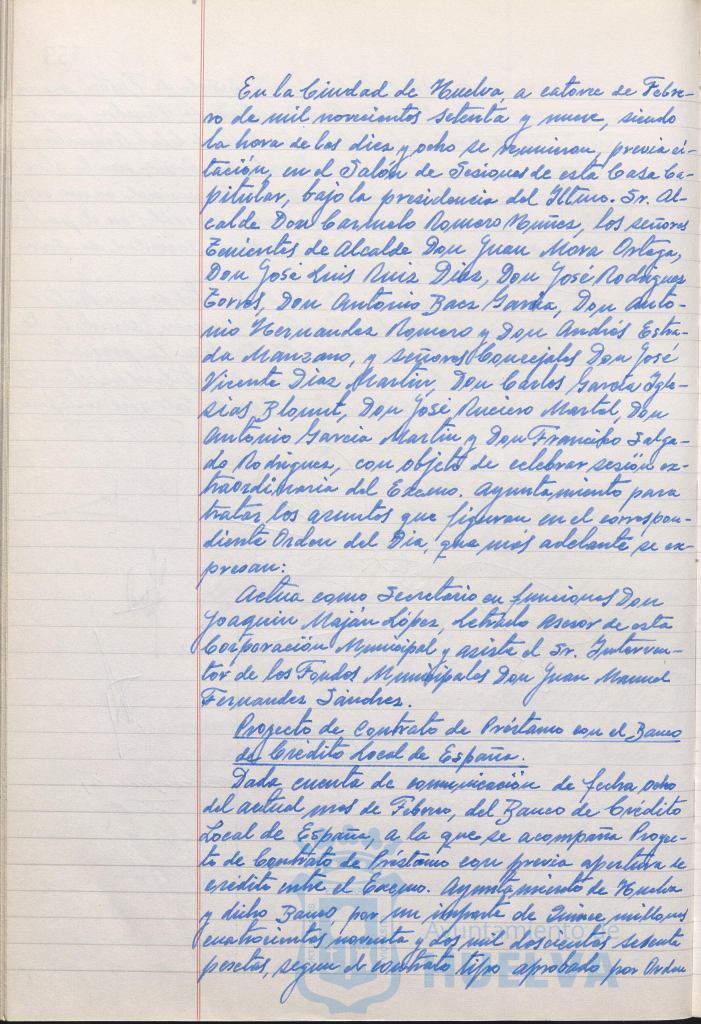 En la Ciudad de Huelva, a catorce de Febre-
ro de mil novecientos setenta y nueve, siendo
la hora de las diez y ocho se reunieron, previa ci-
tación, en el Salón de Sesiones de esta Casa Ca-
pitular, bajo la presidencia del Iltmo. Sr. Al-
calde Don Carmelo Romero Núñez, los señores
Tenientes de Alcalde Don Juan Mora Ortega,
Don José Luis Ruiz Díaz, Don José Rodríguez
Torres, Don Antonio Baez García, Don Anto-
nio Hernandez Romero y Don Andrés Estra-
da Manzano, y señores Concejales Don José
Vicente Díaz Martín, Don Carlos García Igle-
sias Don José Martel, Don
Antonio García Martín y Don Francisco Salga-
do Rodríguez, con objeto de celebrar sesión ex-
traordinaria del Excmo. Ayuntamiento para
tratar los asuntos que figuran en el correspon-
diente Orden del Día, que mas adelante se ex-
presan:
Actua como Secretario en funciones Don
Joaquín Maján López, Letrado Asesor de esta
Corporación Municipal y asiste el Sr. Interven-
tor de los Fondos Municipales Don Juan Manuel
Fernandez Sánchez.
Proyecto de Contrato de Préstamo con el Banco
de Crédito Local de España.
Dada cuenta de comunicación de fecha ocho
del actual mes de Febrero, del Banco de Crédito
Local de España, a la que se acompaña Proyec-
to de Contrato de Préstamo con previa apertura de
crédito entre el Excmo. Ayuntamiento de Huelva
y dicho Banco, por un importe de Quince millones
cuatrocientos noventa y dos mil doscientas setenta
pesetas, segun el contrato tipo aprobado por Orden
Ayuntamiento de
HUELVA